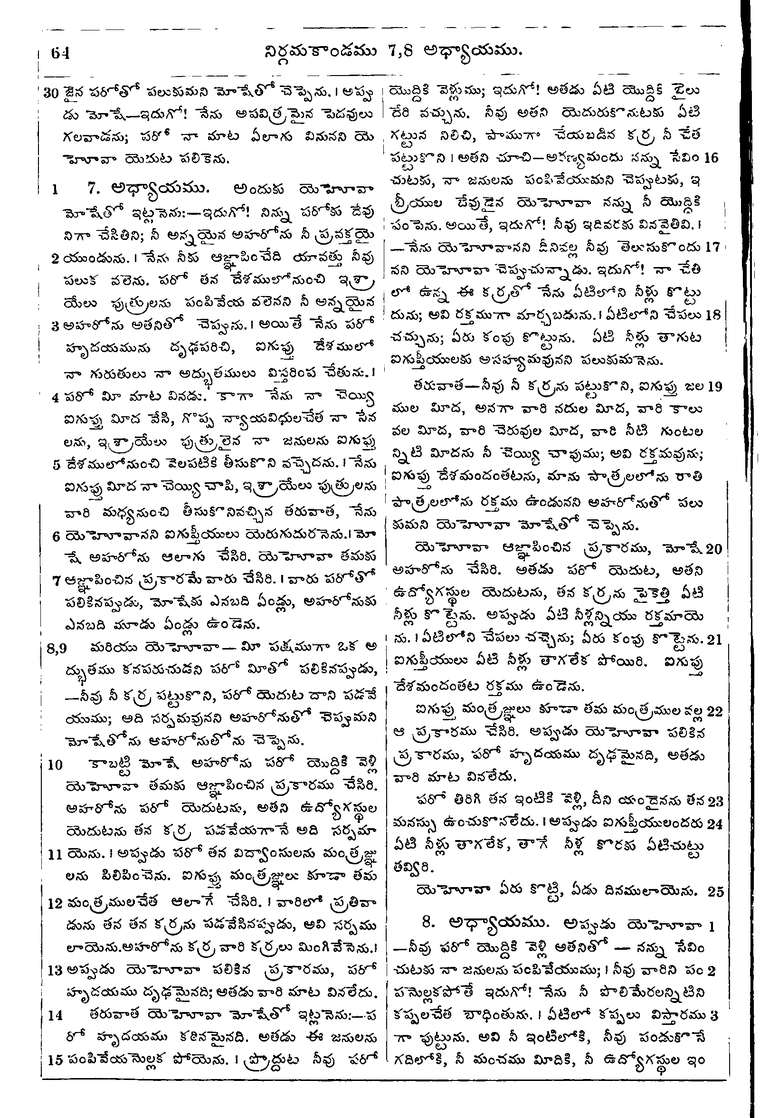 64 నిర్గమకాండము 7,8 అధ్యాయము.
30 జైన పరోతో పలుకుమని మోషేతో చెప్పెను. । అప్పు
డు మోషే—ఇదుగో! నేను అపవిత్రమైన పెదవులు
గలవాడను; పరో నా మాట ఏలాగు వినునని యె
హెూవా యెదుట పలికెను.
1 7. అధ్యాయము. అందుకు యెహెూవా
మోషేతో ఇట్లనెను:—ఇదుగో! నిన్ను పరోకు దేవు
నిగా చేసితిని; నీ అన్నయైన అహరోను నీ ప్రవక్తయై
2 యుండును. । నేను నీకు ఆజ్ఞాపించేది యావత్తు నీవు
పలుక వలెను. పరో తన దేశములోనుంచి ఇశ్రా
యేలు పుత్రులను పంపివేయ వలెనని నీ అన్నయైన
3 అహరోను అతనితో చెప్పును. । అయితే నేను పరో
హృదయమును దృఢపరిచి, ఐగుప్తు దేశములో
నా గురుతులు నా అద్భుతములు విస్తరింప చేతును. ।
4 పరో మీ మాట వినడు. కాగా నేను నా చెయ్యి
ఐగుప్తు మీద వేసి, గొప్ప న్యాయవిధులచేత నా సేన
లను, ఇశ్రాయేలు పుత్రులైన నా జనులను ఐగుప్తు
5 దేశములోనుంచి వెలపటికి తీసుకొని వచ్చెదను. । నేను
ఐగుప్తు మీద నా చెయ్యి చాపి, ఇశ్రాయేలు పుత్రులను
వారి మధ్యనుంచి తీసుకొనివచ్చిన తరువాత, నేను
6 యెహెూవానని ఐగుప్తీయులు యెరుగుదురనెను. । మో
షే అహరోను ఆలాగు చేసిరి. యెహెూవా తమకు
7 ఆజ్ఞాపించిన ప్రకారమే వారు చేసిరి. । వారు పరోతో
పలికినప్పుడు, మోషేకు ఎనబది ఏండ్లు, అహరోనుకు
ఎనబది మూడు ఏండ్లు ఉండెను.
8,9 మరియు యెహెూవా—మీ పక్షముగా ఒక అ
ద్భుతము కనపరుచుడని పరో మీతో పలికినప్పుడు,
—నీవు నీ కర్ర పట్టుకొని, పరో యెదుట దాని పడవే
యుము; అది సర్పమవునని అహరోనుతో చెప్పుమని
మోషేతోను అహరోనుతోను చెప్పెను.
10 కాబట్టి మోషే అహరోను పరో యొద్దికి వెళ్లి
యెహెూవా తమకు ఆజ్ఞాపించిన ప్రకారము చేసిరి.
అహరోను పరో యెదుటను, అతని ఉద్యోగస్థుల
యెదుటను తన కర్ర పడవేయగానే అది సర్పమా
11 యెను. । అప్పుడు పరో తన విద్వాంసులను మంత్రజ్ఞు
లను పిలిపించెను. ఐగుప్తు మంత్రజ్ఞులు కూడా తమ
12 మంత్రములచేత ఆలాగే చేసిరి. । వారిలో ప్రతివా
డును తన తన కర్రను పడవేసినప్పుడు, అవి సర్పము
లాయెను. అహరోను కర్ర వారి కర్రలు మింగివేసెను. ।
13 అప్పుడు యెహెూవా పలికిన ప్రకారము, పరో
హృదయము దృఢమైనది; ఆతడు వారి మాట వినలేదు.
14 తరువాత యెహెూవా మోషేతో ఇట్లనెను:—ప
రో హృదయము కఠినమైనది. అతడు ఈ జనులను
15 పంపివేయనెుల్లక పోయెను. । ప్రొద్దుట నీవు పరో
యొద్దికి వెళ్లుము; ఇదుగో! అతడు ఏటి యొద్దికి బైలు
దేరి వచ్చును. నీవు అతని యెదురుకొనుటకు ఏటి
గట్టున నిలిచి, పాముగా చేయబడిన కర్ర నీ చేత
పట్టుకొని । అతని చూచి—అరణ్యమందు నన్ను సేవిం 16
చుటకు, నా జనులను పంపివేయుమని చెప్పుటకు, ఇ
బ్రీయుల దేవుడైన యెహెూవా నన్ను నీ యొద్దికి
పంపెను. అయితే, ఇదుగో! నీవు ఇదివరకు వినవైతివి. ।
—నేను యెహెూవానని దీనివల్ల నీవు తెలుసుకొందు 17
వని యెహెూవా చెప్పుచున్నాడు. ఇదుగో! నా చేతి
లో ఉన్న ఈ కర్రతో నేను ఏటిలోని నీళ్లు కొట్టు
దును; అవి రక్తముగా మార్చబడును. । ఏటిలోని చేపలు 18
చచ్చును; ఏరు కంపు కొట్టును. ఏటి నీళ్లు తాగుట
ఐగుప్తీయులకు అసహ్యమవునని పలుకుమనెను.
తరువాత—నీవు నీ కర్రను పట్టుకొని, ఐగుప్తు జల 19
ముల మీద, అనగా వారి నదుల మీద, వారి కాలు
వల మీద, వారి చెరువుల మీద, వారి నీటి గుంటల
న్నిటి మీదను నీ చెయ్యి చాపుము; అవి రక్తమవును;
ఐగుప్తు దేశమందంతటను, మాను పాత్రలలోను రాతి
పాత్రలలోను రక్తము ఉండునని అహరోనుతో పలు
కుమని యెహెూవా మోషేతో చెప్పెను.
యెహెూవా ఆజ్ఞాపించిన ప్రకారము, మోషే 20
అహరోను చేసిరి. ఆతడు పరో యెదుట, అతని
ఉద్యోగస్థుల యెదుటను, తన కర్రను పైకెత్తి ఏటి
నీళ్లు కొట్టెను. అప్పుడు ఏటి నీళ్లన్నియు రక్తమాయె
ను. । ఏటిలోని చేపలు చచ్చెను; ఏరు కంపు కొట్టెను. 21
ఐగుప్తీయులు ఏటి నీళ్లు తాగలేక పోయిరి. ఐగుప్తు
దేశమందంతట రక్తము ఉండెను.
ఐగుప్తు మంత్రజ్ఞులు కూడా తమ మంత్రముల వల్ల 22
ఆ ప్రకారము చేసిరి. అప్పుడు యెహెూవా పలికిన
ప్రకారము, పరో హృదయము దృఢమైనది, అతడు
వారి మాట వినలేదు.
పరో తిరిగి తన ఇంటికి వెళ్లి, దీని యందైనను తన 23
మనస్సు ఉంచుకొనలేదు. । అప్పుడు ఐగుప్తీయులందరు 24
ఏటి నీళ్లు తాగలేక, తాగే నీళ్ల కొరకు ఏటిచుట్టు
తవ్విరి.
యెహెూవా ఏరు కొట్టి, ఏడు దినములాయెను. 25
8. అధ్యాయము. అప్పుడు యెహెూవా 1
—నీవు పరో యొద్దికి వెళ్లి అతనితో — నన్ను సేవిం
చుటకు నా జనులను పంపివేయుము; । నీవు వారిని పం 2
పనెుల్లకపోతే ఇదుగో! నేను నీ పొలిమేరలన్నిటిని
కప్పలచేత బాధింతును. । ఏటిలో కప్పలు విస్తారము 3
గా పుట్టును. అవి నీ ఇంటిలోకి, నీవు పండుకొనే
గదిలోకి, నీ మంచము మీదికి, నీ ఉద్యోగస్థుల ఇం